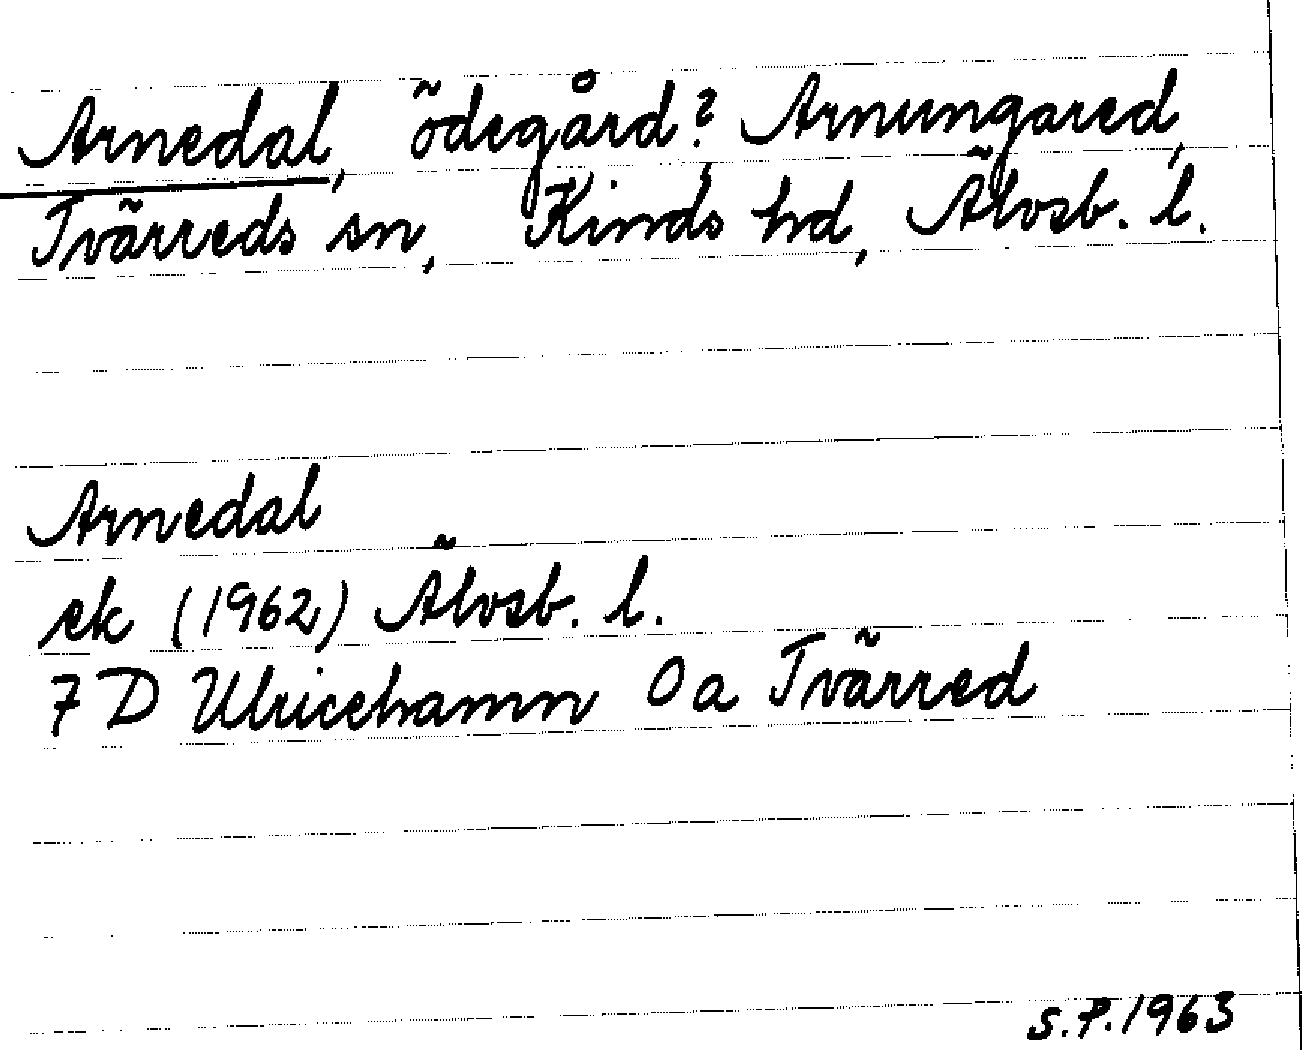 Arnedal, ödegård? Arnungared,
Tvärreds sn, Kinds hd, Älvsb. l.
Arnedal
ek (1962) Älvsb. l.
7 D Ulricehamn 0 a Tvärred
S.P. 1963